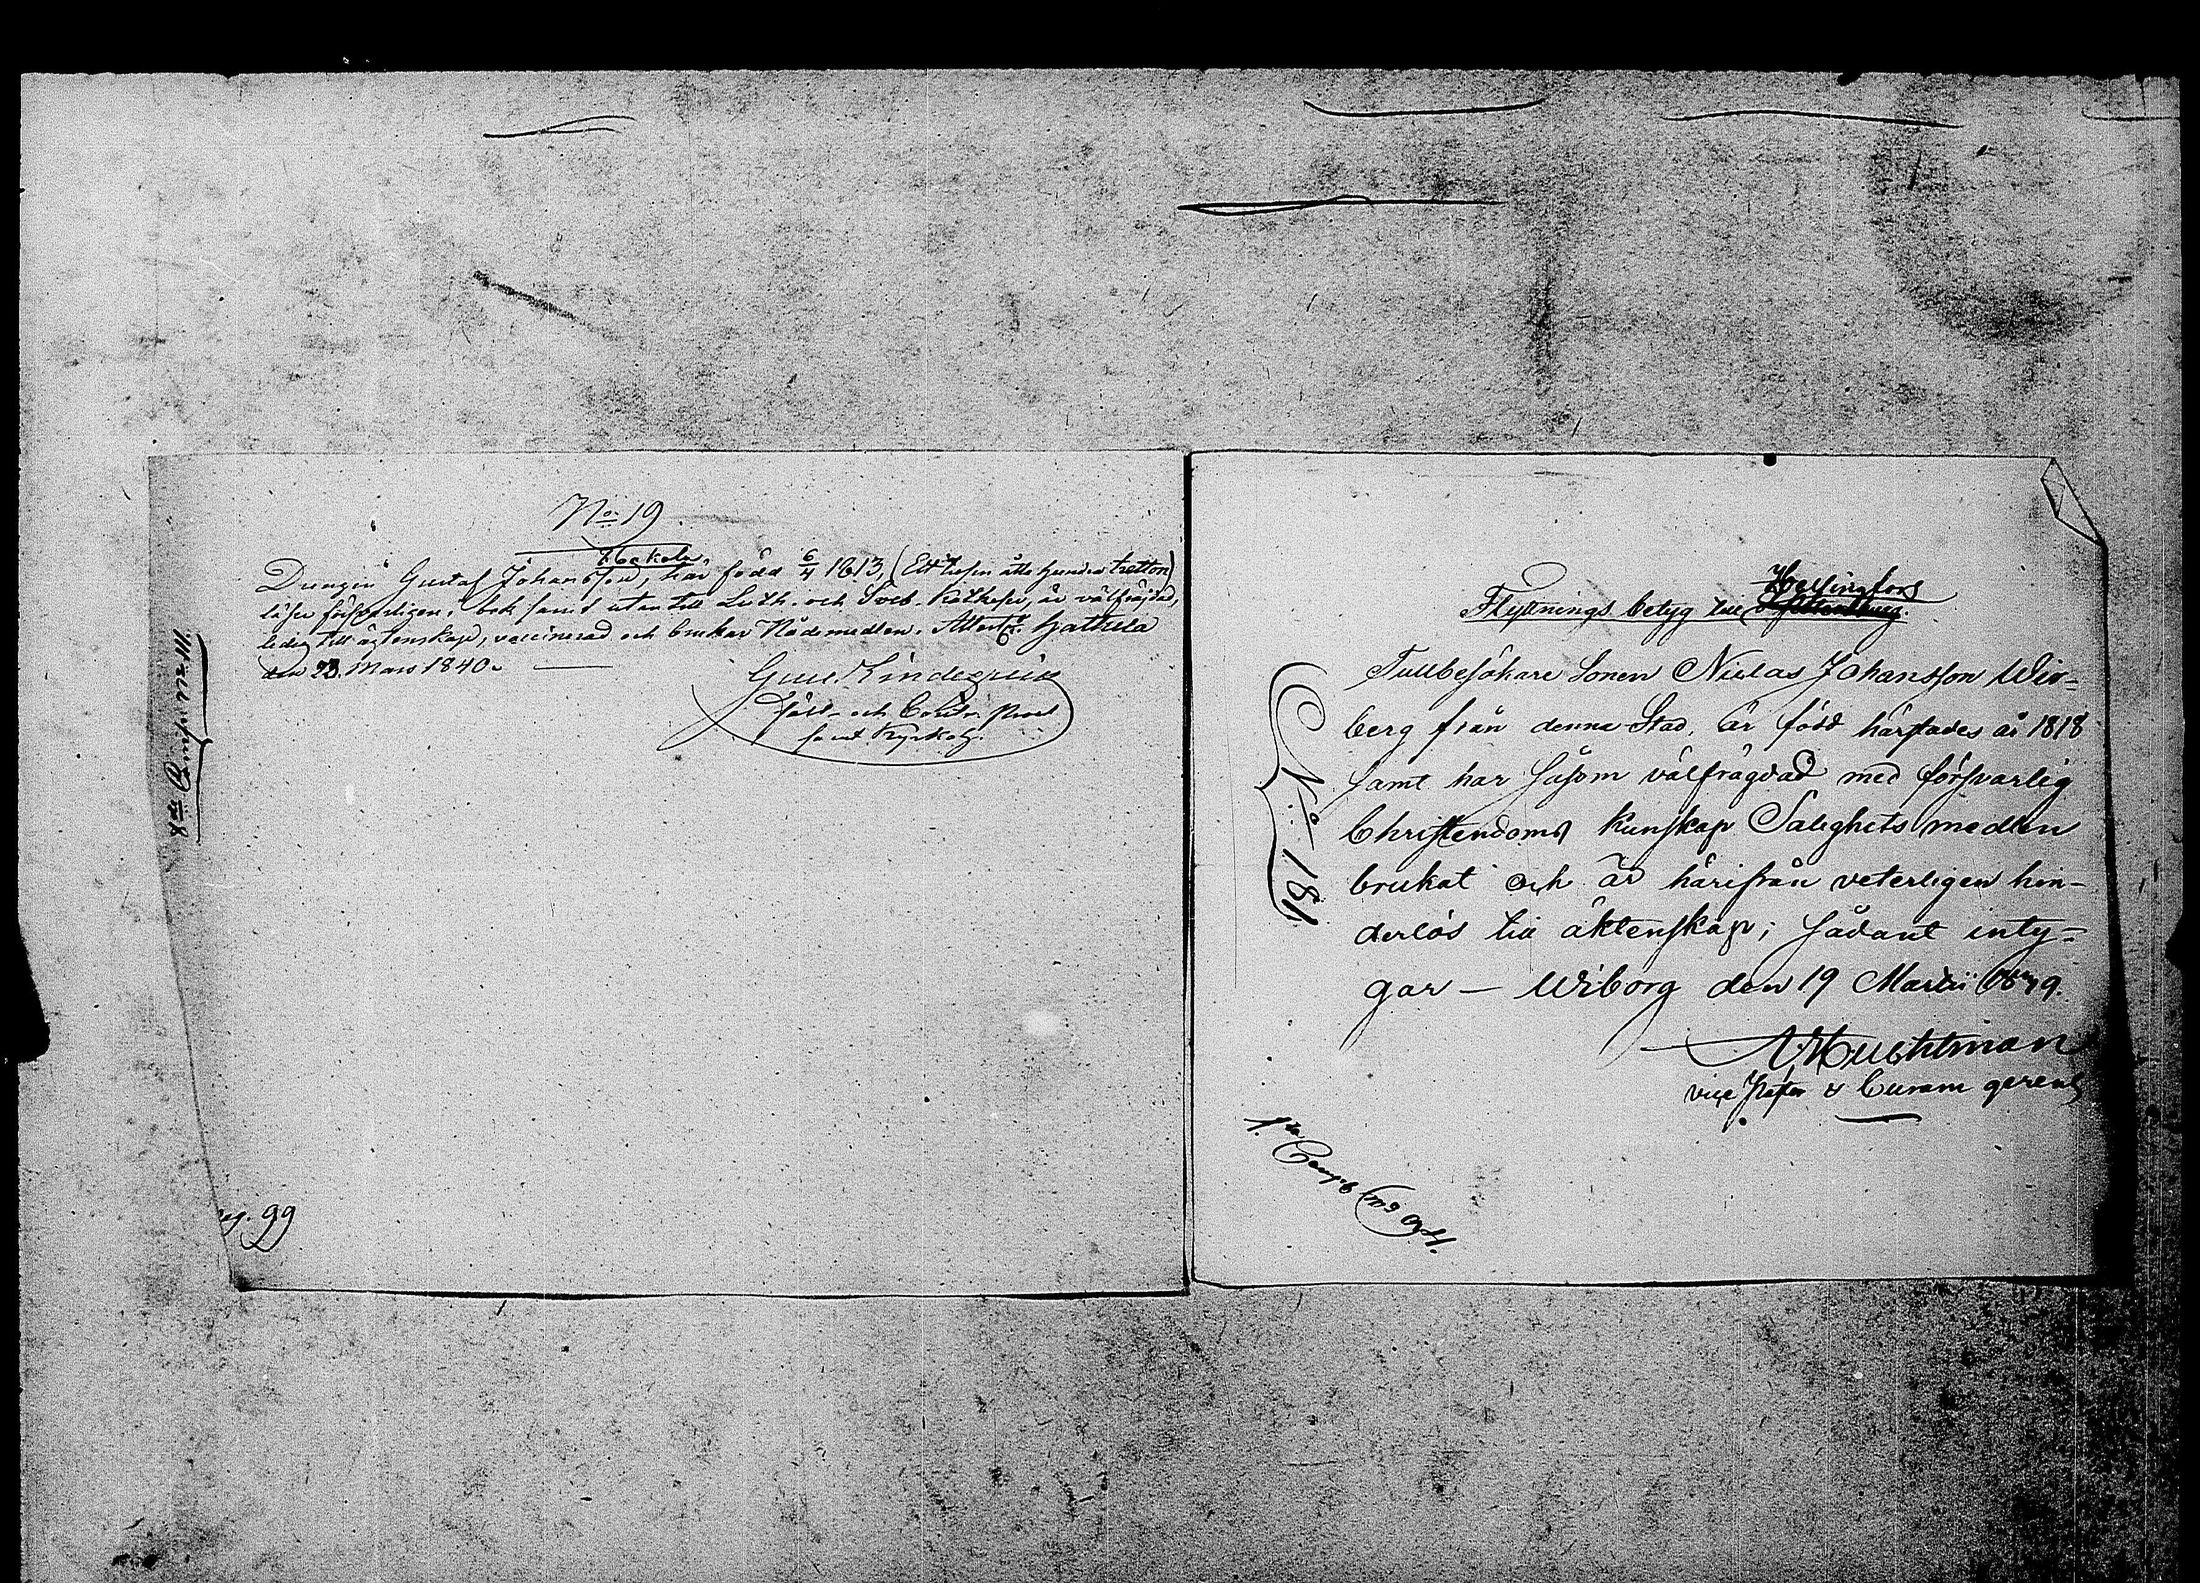 No 19
Hockola
Drengen Gustaf Johansson, här född 6/4 1813, (Ett tusen åtta hundra tretton)
läser försvarligen i bok samt utan till Luth. och Sveb. Katkeser, är välfrägdad,
ledig till äktenskap, vaccinerad och brukar Nådemedlen. Attest.
den 23. Mars 1840.
Gust
samt Kyrkoh.
8de Comp. No 111.
99
Flyttnings betyg till Helsingfors
Tullbesökare Sonen Niclas Johansson Wir=
berg från denna Stad, är född härstädes år 1818
samt har såsom välfrägdad med försvarlig
Christendoms kunskap Salighets medlen
brukat och är härifrån veterligen hin-
derlös till äktenskap; sådant inty=
gar — Wiborg den 19 Martii 1839.
vice Pastor & Curam gerens
No 181
1sta Comp. No 94.